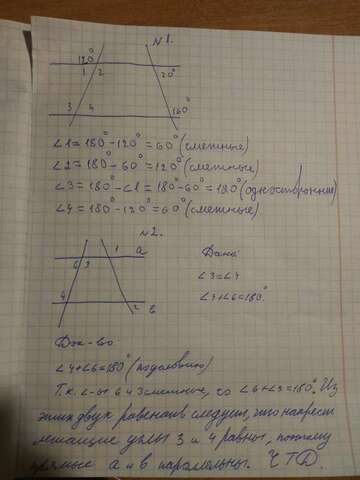 N1.
120°
1 2
20°
3 4
160°
∠1=180°-120°=60° (смежные)
∠2=180°-60°=120° (смежные)
∠3=180°-∠1=180°-60°=120° (односторонние)
∠4=180°-120°=60° (смежные)
N2.
1 a
6 3
4
2 в
Дано:
∠3=∠4
∠4+∠6=180°
Док-во
∠4+∠6=180° (по условию)
Т.к. ∠-ы 6 и 3 смежные, то ∠6+∠3=180°. Из
этих двух равенств следует, что накрест
лежащие углы 3 и 4 равны, поэтому
прямые a и в паралельны. ЧТД.